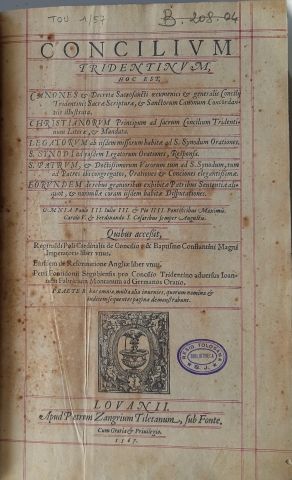 TOU 1/57
B. 208.04
CONCILIVM
TRIDENTINVM,
HOC EST,
CANONES & Decreta Sacrosancti œcumenici & generalis Concilij
Tridentini: Sacræ Scripturæ, & Sanctorum Canonum Concordan-
tiis illustrata.
CHRISTIANORVM Principum ad sacrum Concilium Tridenti-
num Literæ, & Mandata.
LEGATORVM ab ijsdem missorum habitæ ad S. Synodum Orationes.
S. SYNODI ad ijsdem Legatorum Orationes, Responsa.
S. PATRVM, & Doctissimorum Virorum tum ad S. Synodum, tum
ad Patres ibi congregatos, Orationes & Conciones elegantissimæ.
EORVNDEM de rebus grauioribus exhibitæ Patribus Sententiæ ali-
quot, & nonnullæ coram ijsdem habitæ Disputationes.
OMNIA Paulo III. Iulio III. & Pio IIII. Pontificibus Maximis.
Carolo V. & Ferdinando I. Cæsaribus semper Augustis.
Quibus accessit,
Reginaldi Poli Cardinalis de Concilio & de Baptismo Constantini Magni
Imperatoris liber vnus.
Eiusdem de Reformatione Angliæ liber vnus.
Petri Fontidonij Segobiensis pro Concilio Tridentino aduersus Ioan-
nem Fabricium Montanum ad Germanos Oratio.
PRAETER hæc omnia, multa alia inuenies, quorum nomina &
indicem sequentes paginæ demonstrabunt.
BIBLIOTHECA
S. J.
LOVANII.
Apud Petrum Zangrium Tiletanum, sub Fonte.
Cum Gratia & Priuilegio.
1567.